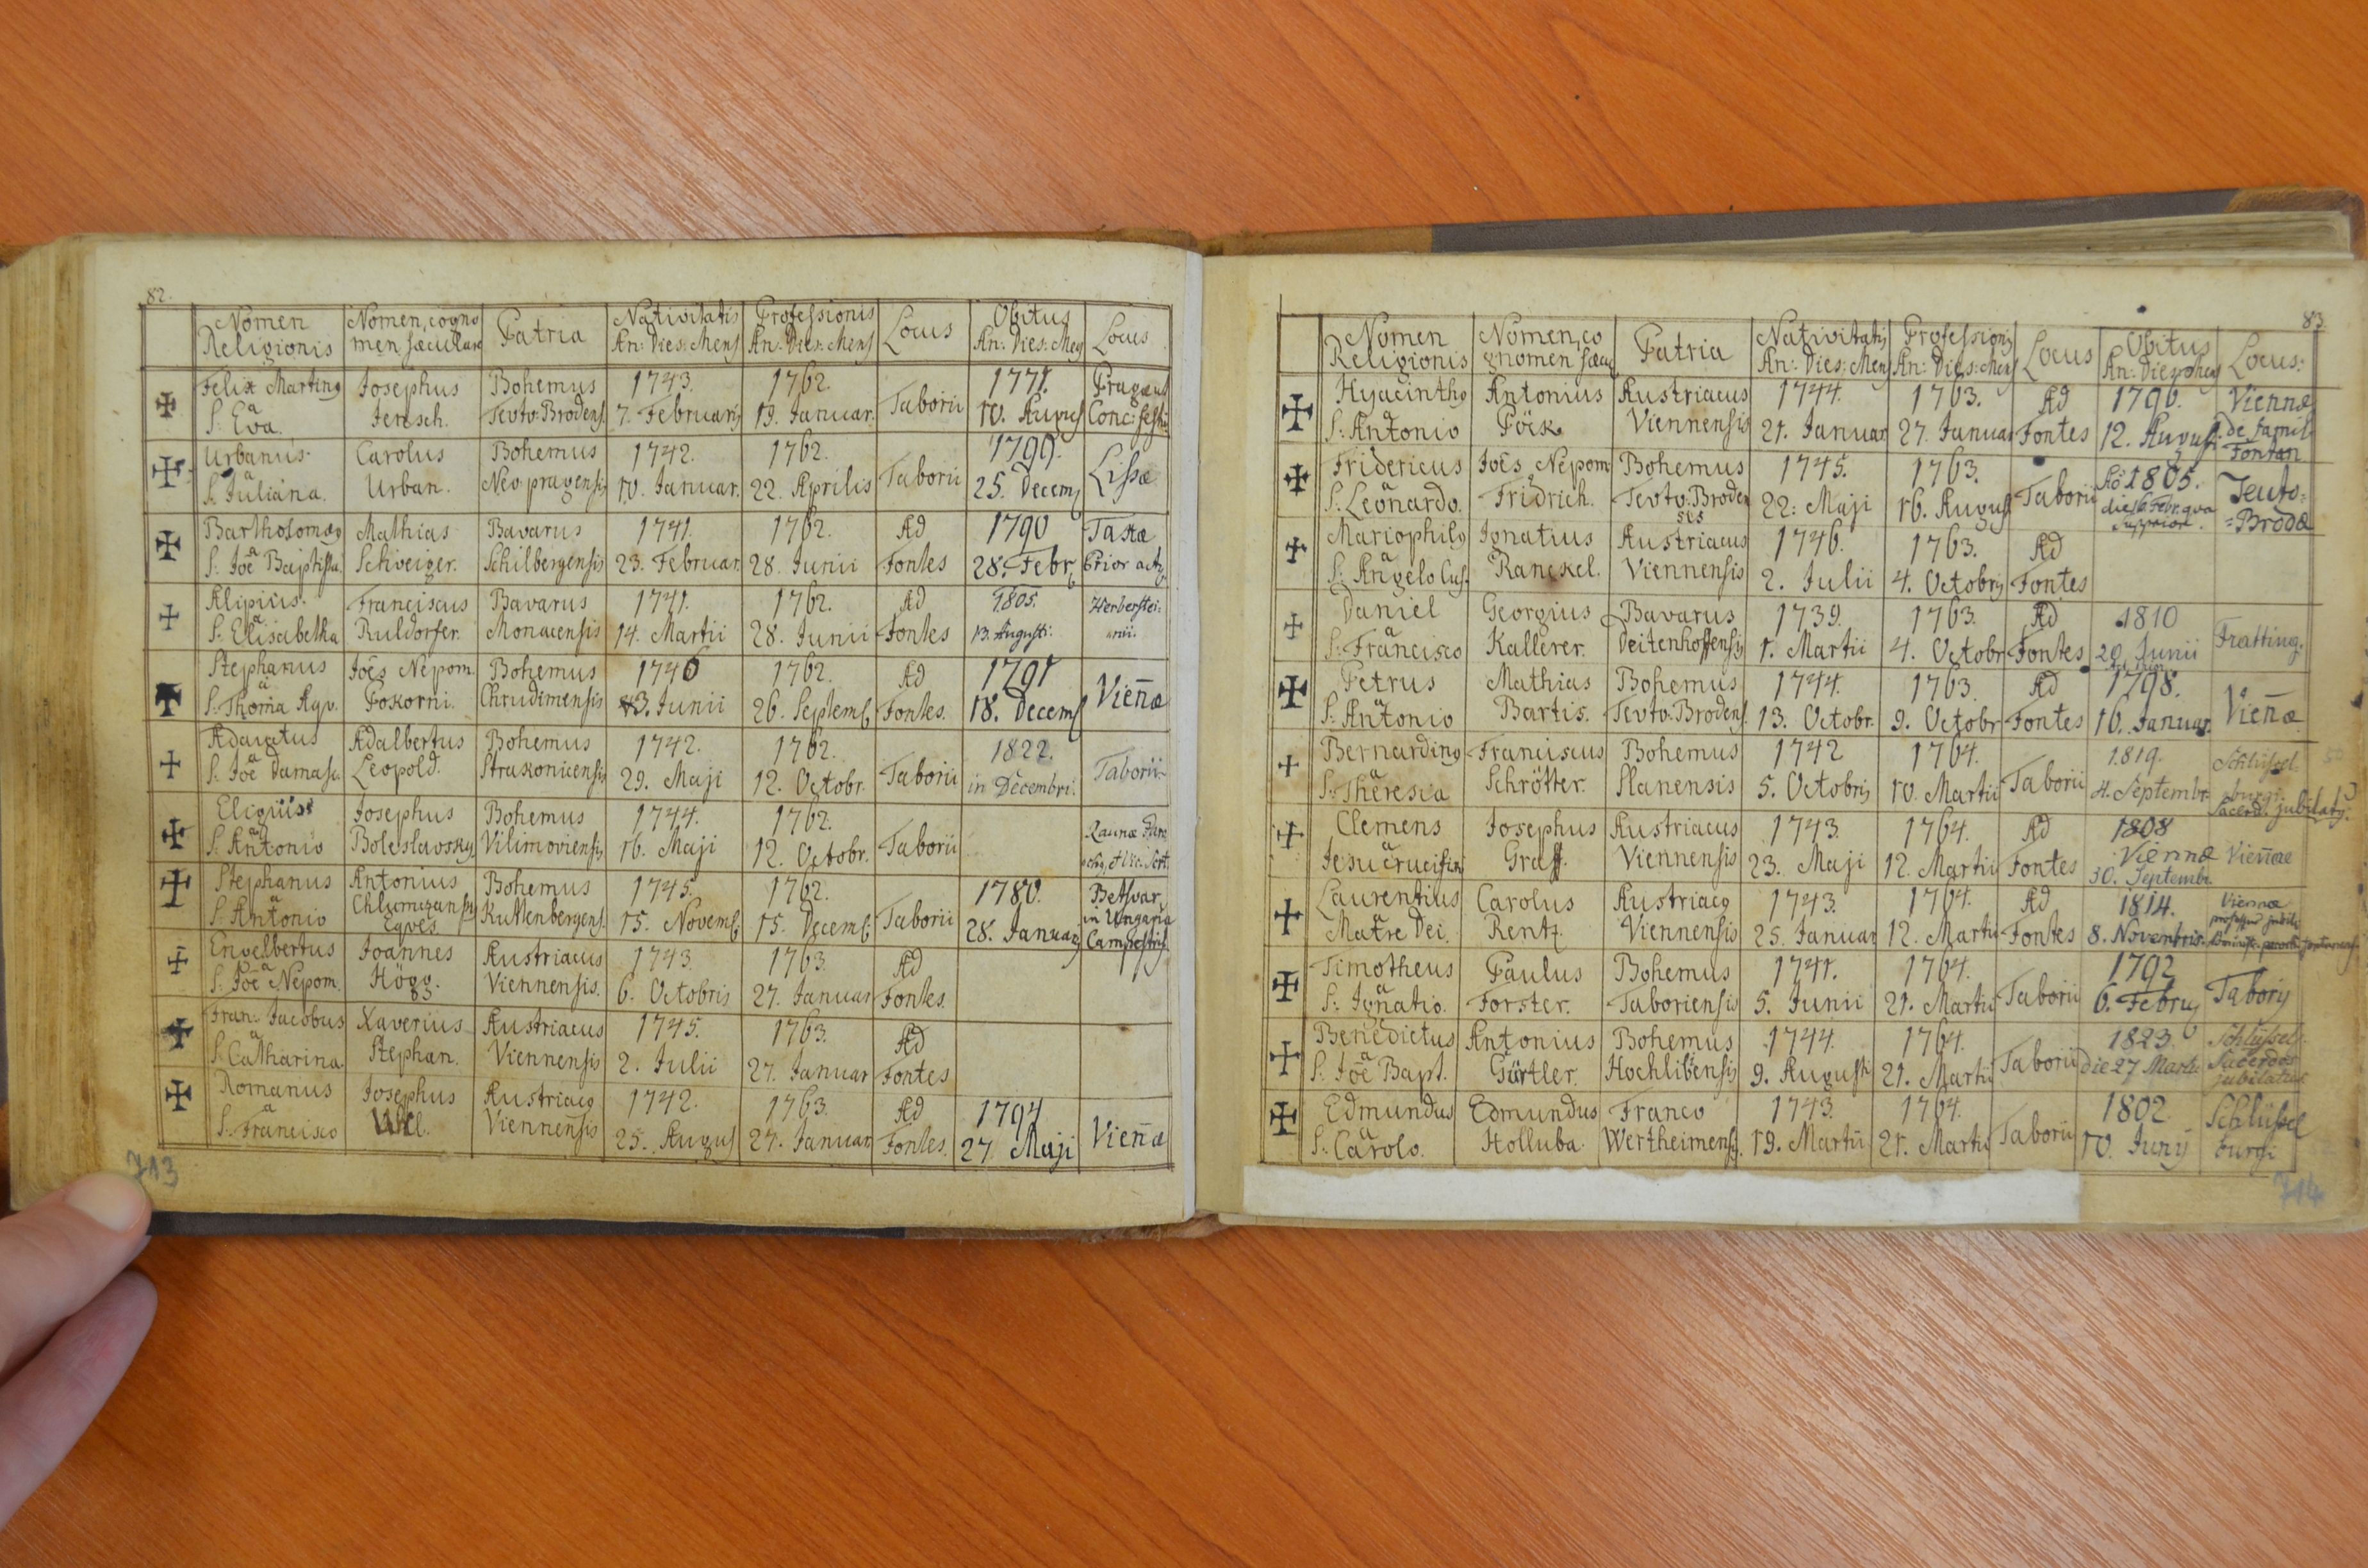 82.
Nomen Religionis | Nomen, cogno men sæculare | Patria | Nativitatis An: Dies: Mens | Professionis An: Dies: Mens | Locus | Obitus An: Dies: Mens | Locus
Felix Martinus Josephus Bohemus 1743. 1762. 1771. Pragæ
S. Eva. Jensch. Tevto: Brodens. 7. Februarii 19. Januar. Taborii 10. Augus
Urbanus. Carolus Bohemus 1742. 1762. 1799.
à S. Juliana. Urban. Neo pragensis 10. Januar. 22. Aprilis Taborii 25. Decem Lissæ
Bartholomæus Mathias Bavarus 1741. 1762. Ad 1790 Tastæ
à S. Joe Baptista Schveiger. Schilbergensis 23. Februar. 28. Junii Fontes 28. Febr. Prior
Alipius. Franciscus Bavarus 1741. 1762. Ad 1805. Herberstei:
à S. Elisabetha Ruldorfer. Monacensis 14. Martii 28. Junii Fontes 13. Augusti.
Stephanus Joes Nepom. Bohemus 1740 1762. Ad 1791
à S. Thoma Aqv. Pokorni. Chrudimensis 3. Junii 26. Septemb. Fontes. 18. Decemb Vieñæ
Adauctus Adalbertus Bohemus 1742. 1762. 1822.
à S. Joe Damasc. Leopold. Strakonicensis 29. Maji 12. Octobr. Taborii in Decembri. Taborii
Eligius Josephus Bohemus 1744. 1762.
à S. Antonio Boleslavsky. Vilimoviensis 16. Maji 12. Octobr. Taborii
Stephanus Antonius Bohemus 1745. 1762. 1780. Betsvar
à S. Antonio Chlumczansky Eqves Kuttenbergens. 15. Novemb. 15. Decemb. Taborii 28. Januar in Ungaria Campestris
Engelbertus Joannes Austriacus 1743. 1763. Ad
à S. Joe Nepom. Högg. Viennensis. 6. Octobris 27. Januar Fontes.
Fran: Jacobus Xaverius Austriacus 1745. 1763. Ad
à S. Catharina. Stephan. Viennensis 2. Julii 27. Januar Fontes
Romanus Josephus Austriacus 1742. 1763. Ad 1794
à S. Francisco Viennensis 25. Augus 27. Januar Fontes. 27. Maji Vieñæ
713
83
Nomen Religionis | Nomen, co gnomen sæcu | Patria | Nativitatis An: Dies: Mens | Professionis An: Dies: Mens | Locus | Obitus An: Dies Mens | Locus:
Hyacinthus Antonius Austriacus 1744. 1763. Ad 1796. Viennæ
à S. Antonio Föck Viennensis 21. Januar 27. Januar Fontes 12. August. de famil. Fontan
Fridericus Joes Nepom Bohemus 1745. 1763. Aõ 1805.
à S. Leonardo. Fridrich. Tevto: Broden sis 22. Maji 16. August Taborii die 6 Febr. qva Teuto= =Brodæ
Mariophilus Ignatius Austriacus 1746. 1763. Ad
à S. Angelo Cus. Ranckel. Viennensis 2. Julii 4. Octobris Fontes
Daniel Georgius Bavarus 1739. 1763. Ad 1810
à S. Francisco Kallerer. Deitenhoffensis 1. Martii 4. Octobr Fontes 20 Junii Fratting.
Petrus Mathias Bohemus 1744. 1763. Ad 1798.
à S. Antonio Bartis. Tevto: Brodens. 13. Octobr. 9. Octobr Fontes 16. Januar. Vieñæ
Bernardinus Franciscus Bohemus 1742 1764. 1819. Schlüssel-
à S. Theresia Schrötter. Slanensis 5. Octobris 10. Martii Taborii 4. Septembr. burgi. Sacerd. jubilatus.
Clemens Josephus Austriacus 1743. 1764. Ad 1808
à Jesu crucifix. Graff. Viennensis 23. Maji 12. Martii Fontes Viennæ 30. Septembr. Vieñæe
Laurentius Carolus Austriacus 1743. 1764. Ad 1814. Viennæ
à Matre Dei. Rentz. Viennensis 25. Januar 12. Martii Fontes 8. Novembris.
Timotheus Paulus Bohemus 1741. 1764. 1792
à S. Ignatio. Forster. Taboriensis 5. Junii 21. Martii Taborii 6. Febru Tabory
Benedictus Antonius Bohemus 1744. 1764. 1823. Schlüssel.
à S. Joe Bapt. Gürtler. Hochlibensis 9. Augusti 21. Martii Taborii die 27 Martii Sacerdos jubilatus
Edmundus Edmundus Franco 1743. 1764. 1802 Schlüssel
à S. Carolo. Holluba. Wertheimens. 19. Martii 21. Martii Taborii 10. Junÿ burgi
714